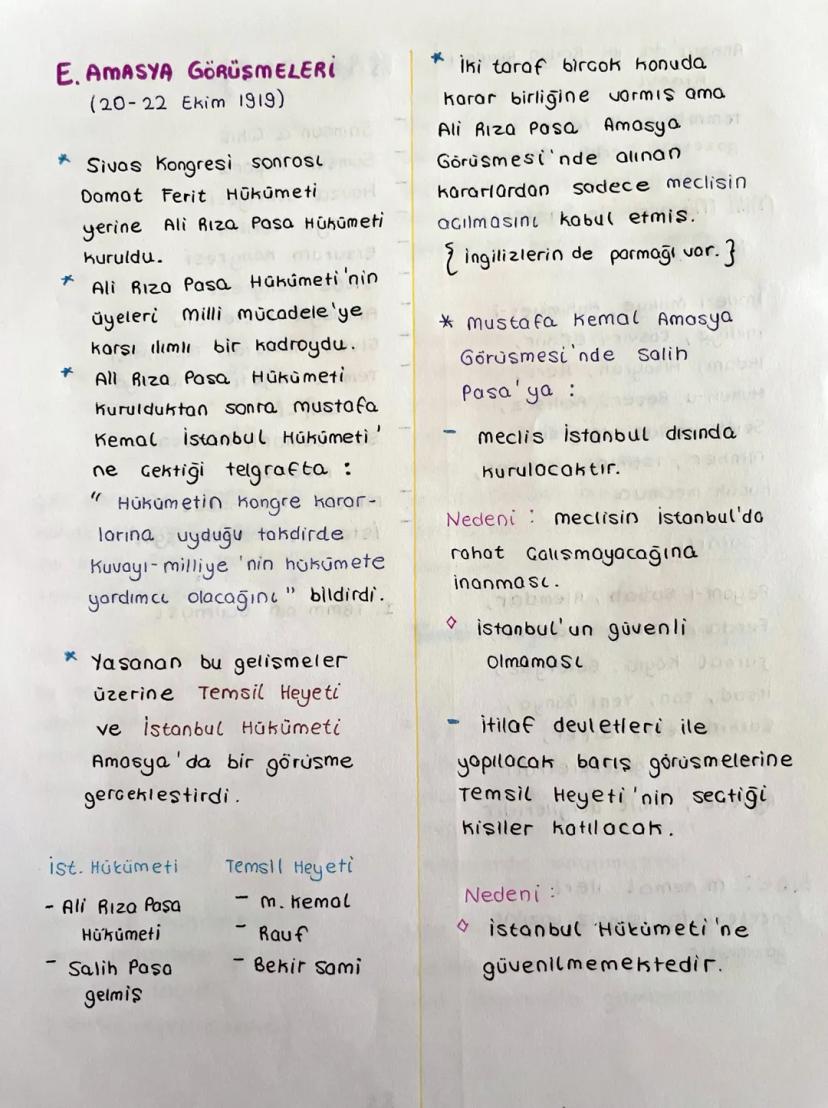 E. AMASYA GÖRÜŞMELERİ
(20-22 Ekim 1919)
* Sivas Kongresi sonrası
Damat Ferit Hükûmeti
yerine Ali Rıza Paşa Hükûmeti
kuruldu.
* Ali Rıza Paşa Hükûmeti'nin
üyeleri Milli mücadele'ye
karşı ılımlı bir kadroydu.
* Ali Rıza Paşa Hükûmeti
kurulduktan sonra mustafa
Kemal İstanbul Hükûmeti'
ne çektiği telgrafta :
" Hükûmetin kongre karar-
larına uyduğu takdirde
Kuvayı-milliye 'nin hükûmete
yardımcı olacağını" bildirdi.
* Yaşanan bu gelişmeler
üzerine Temsil Heyeti
ve İstanbul Hükûmeti
Amasya'da bir görüşme
gerçekleştirdi.
İst. Hükümeti
- Ali Rıza Paşa
Hükûmeti
- Salih Paşa
gelmiş
Temsil Heyeti
- M. Kemal
- Rauf
- Bekir Sami
* İki taraf birçok konuda
karar birliğine varmış ama
Ali Rıza Paşa Amasya
Görüşmesi'nde alınan
kararlardan sadece meclisin
açılmasını kabul etmiş.
{ ingilizlerin de parmağı var. }
* Mustafa Kemal Amasya
Görüşmesi'nde Salih
Paşa'ya :
- meclis İstanbul dışında
kurulacaktır.
Nedeni : meclisin İstanbul'da
rahat çalışmayacağına
inanması.
◇ İstanbul'un güvenli
olmaması
- İtilaf devletleri ile
yapılacak barış görüşmelerine
Temsil Heyeti'nin seçtiği
kişiler katılacak.
Nedeni :
◇ İstanbul Hükümeti'ne
güvenilmemektedir.